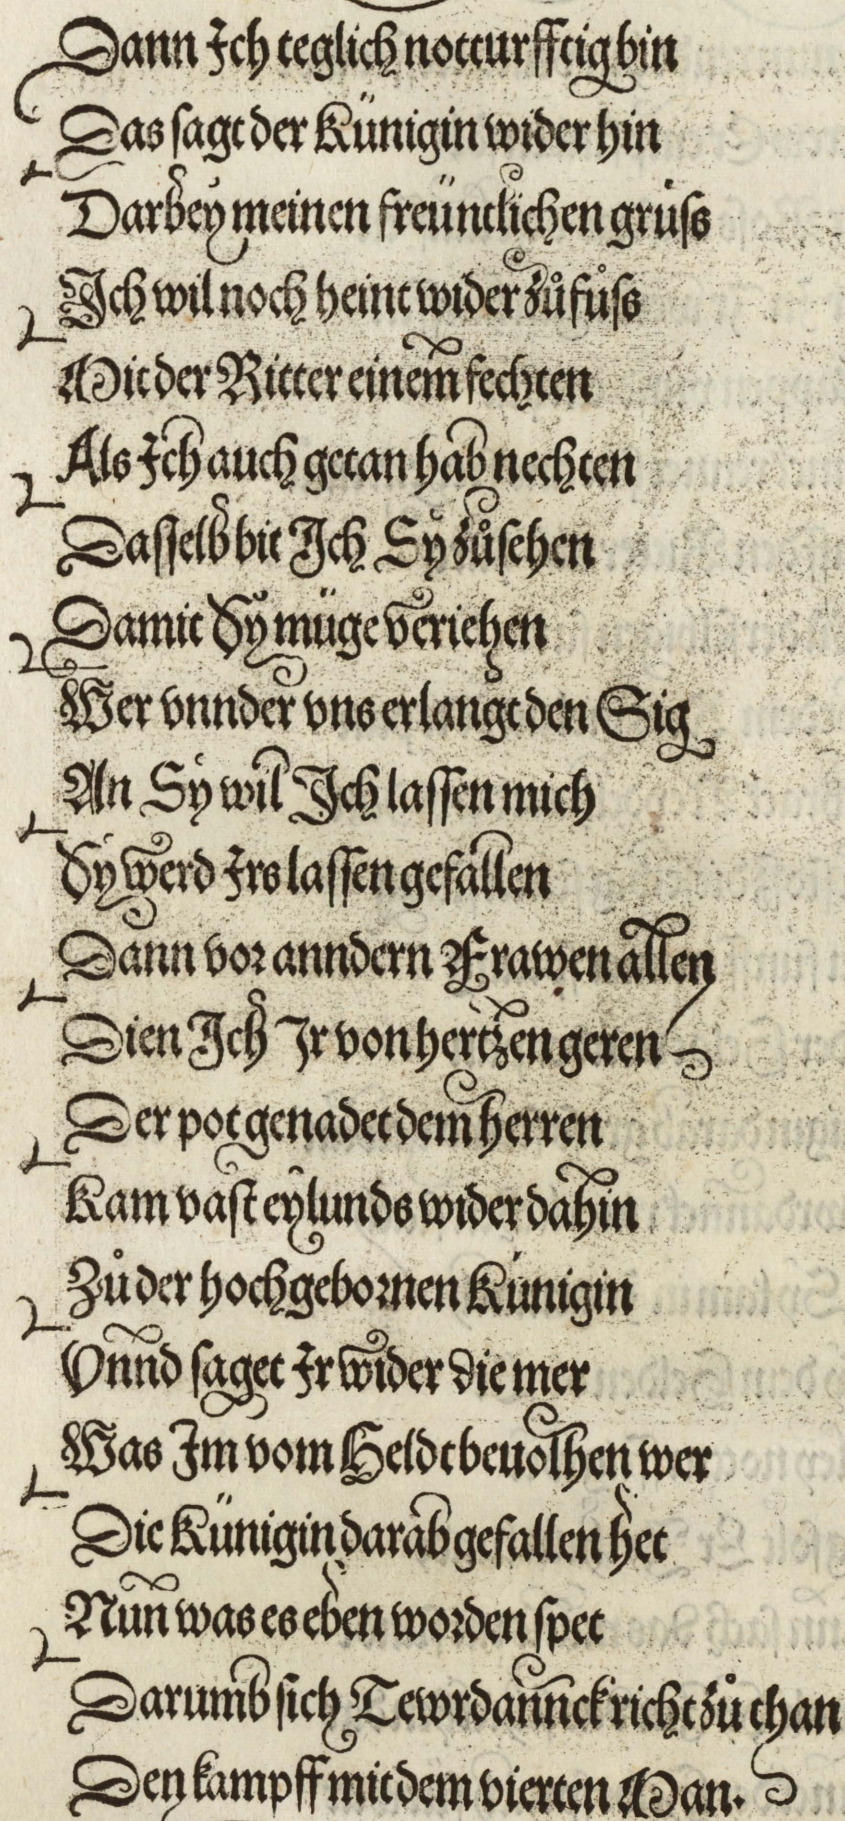 Dann Ich teglich notturfftig bin
Das sagt der Künigin wider hin
Darbey meinen freüntlichen grůss
Ich wil noch heint wider zů fůss
Mit der Ritter einem fechten
Als Ich auch getan hab nechten
Dasselb bit Ich Sy zů sehen
Damit Sy müge veriehen
Wer vnnder vns erlangt den Sig
An Sy wil Ich lassen mich
Sy werd Irs lassen gefallen
Dann vor anndern Frawen allen
Dien Ich Ir von hertzen geren
Der pot genadet dem herren
Kam vast eylunds wider dahin
Zů der hochgebornen Künigin
Vnnd saget Ir wider die mer
Was Im vom Heldt beuolhen wer
Die Künigin darab gefallen het
Nun was es eben worden spet
Darumb sich Tewrdannck richt zů than
Den kampff mit dem vierten Man.